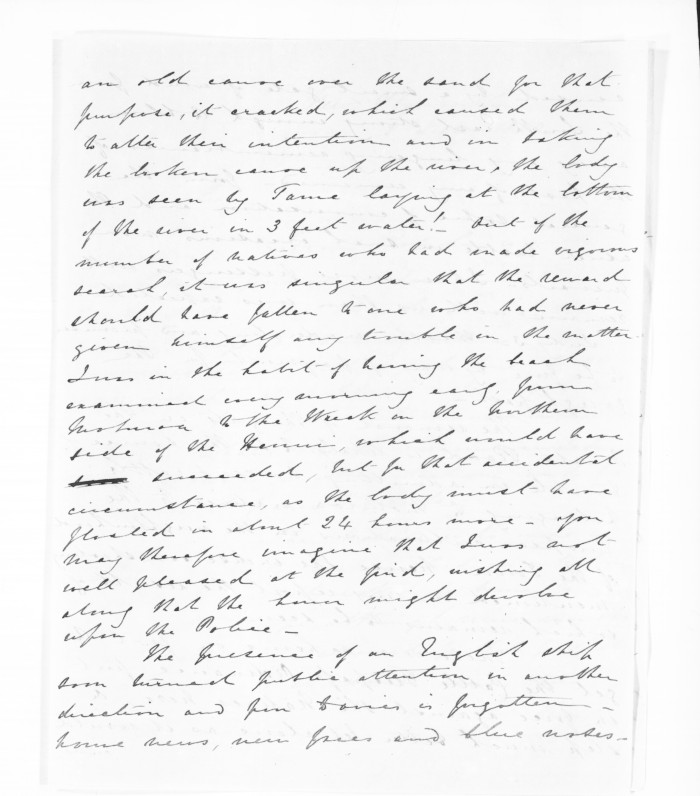 an old canoe over the sand for that
purpose, it cracked, which caused them
to alter their intention and in taking
the broken canoe up the river, the body
was seen by Tame laying at the bottom
of the river in 3 feet water! - Out of the
number of natives who had made vigorous
search, it was singular that the reward
should have fallen to one who had never
given himself any trouble in the matter -
I was in the habit of having the beach
examined every morning early from
to the Wreck on the Northern
side of the , which would have
succeeded, but for that accidental
circumstance, as the body must have
floated in about 24 hours more - you
may therefore imagine that I was not
well pleased at the find, wishing all
along that the honor might devolve
upon the Police -
The presence of an English ship
soon turned public attention in another
direction and poor Davies is forgotten -
home news, new faces and blue noses -